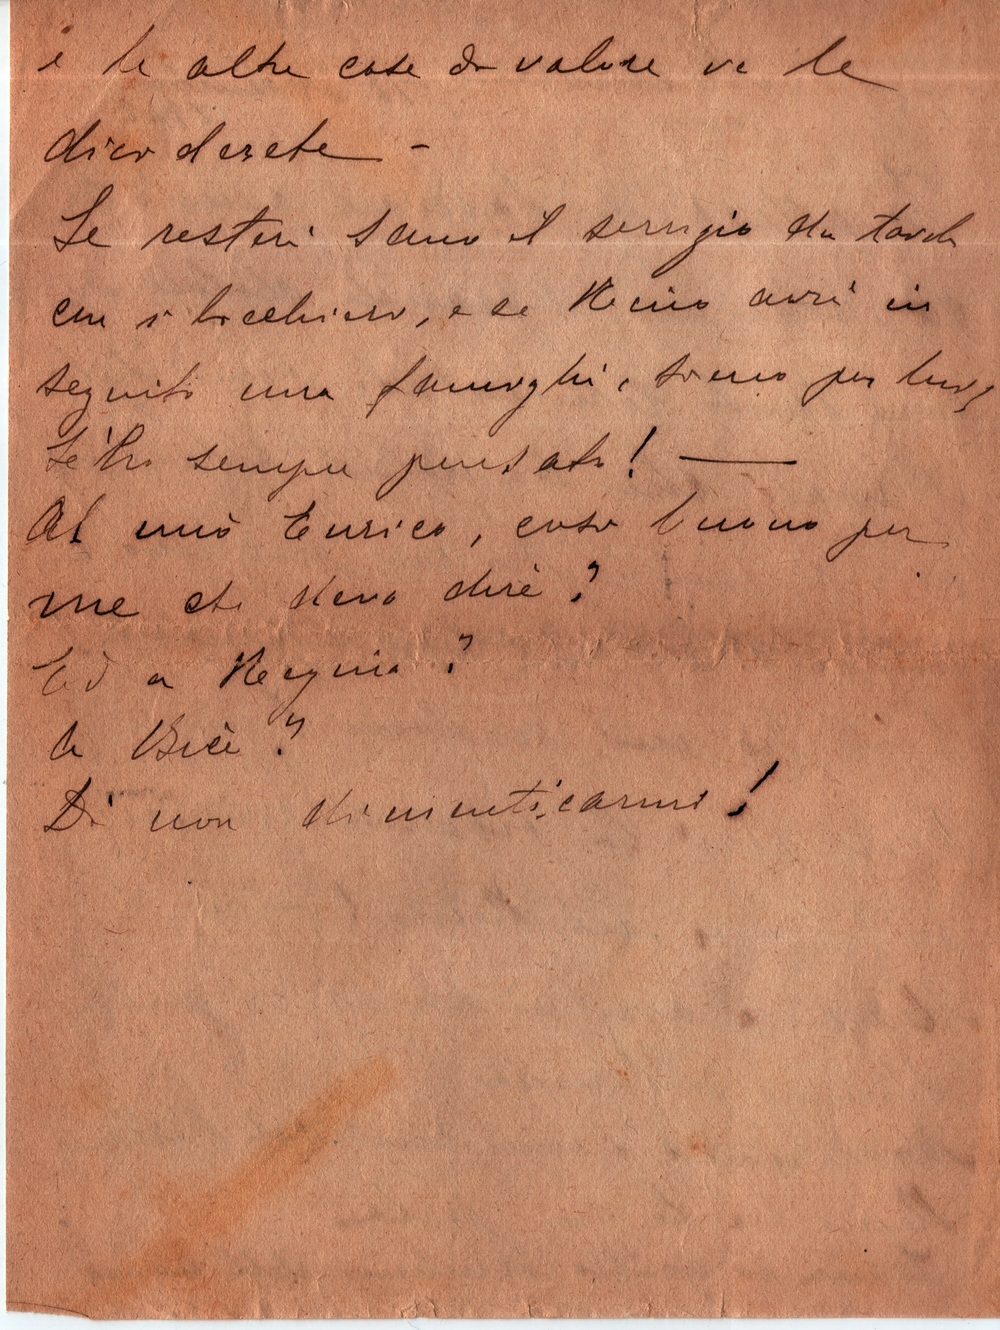 e le altre cose di valore ve le
dividerete -
Se resterà sano il servizio da tavola
con i bicchieri, e se Nino avrà in
seguito una famiglia, siano per lui,
L'ho sempre pensato! —
Al mio Enrico, così buono per
me che devo dire?
Ed a Regina?
a Bice?
Di non dimenticarmi!